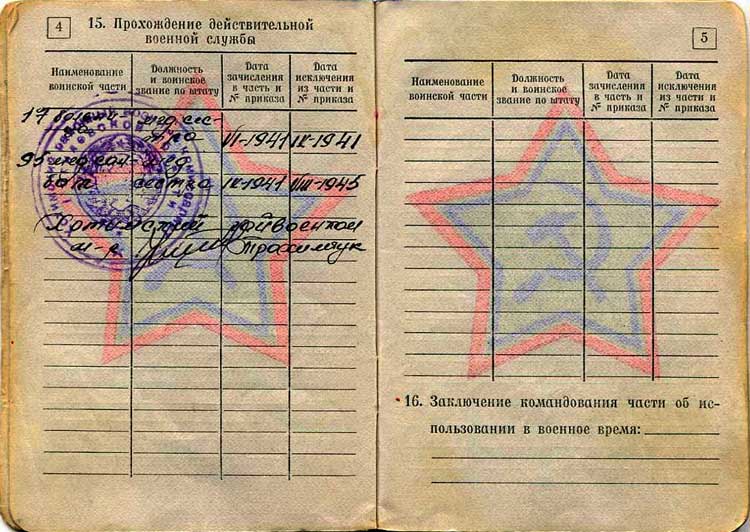 4
15. Прохождение действительной
военной службы
Наименование
воинской части
Должность
и воинское
звание по штату
Дата
зачисления
в часть и
№ приказа
Дата
исключения
из части и
№ приказа
17
VI-1941
IX-1941
95 мед.сан-
бат
мед
сестра
IX-1941
VIII-1945
Хотимский райвоенком
м-р
5
Наименование
воинской части
Должность
и воинское
звание по штату
Дата
зачисления
в часть и
№ приказа
Дата
исключения
из части и
№ приказа
16. Заключение командования части об ис-
пользовании в военное время: